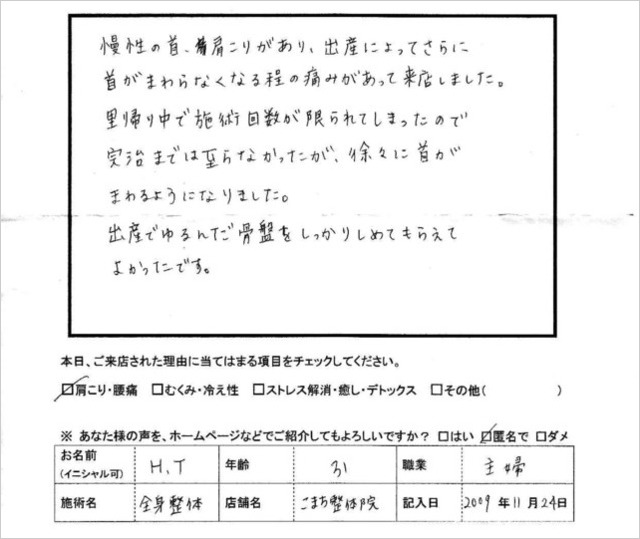 慢性の首、肩こりがあり、出産によってさらに
首がまわらなくなる程の痛みがあって来店しました。
里帰り中で施術回数が限られてしまったので
完治までは至らなかったが、徐々に首が
まわるようになりました。
出産でゆるんだ骨盤をしっかりしめてもらえて
よかったです。
本日、ご来店された理由に当てはまる項目をチェックしてください。
☑肩こり・腰痛 □むくみ・冷え性 □ストレス解消・癒し・デトックス □その他( )
※ あなた様の声を、ホームページなどでご紹介してもよろしいですか? □はい ☑匿名で □ダメ
お名前 (イニシャル可) H.T 年齢 31 職業 主婦
施術名 全身整体 店舗名 こまち整体院 記入日 2009年11月24日